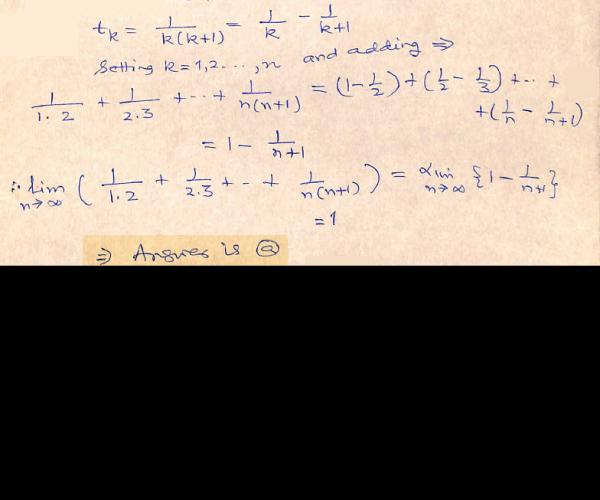 t_k = 1/k(k+1) = 1/k - 1/k+1
Setting k=1,2...,n and adding ⇒
1/1.2 + 1/2.3 + -- + 1/n(n+1) = (1-1/2)+(1/2-1/3)+--+
+(1/n - 1/n+1)
= 1 - 1/n+1
∴ lim n→∞ ( 1/1.2 + 1/2.3 + - + 1/n(n+1) ) = lim n→∞ {1 - 1/n+1}
= 1
⇒ Answer is ⓐ